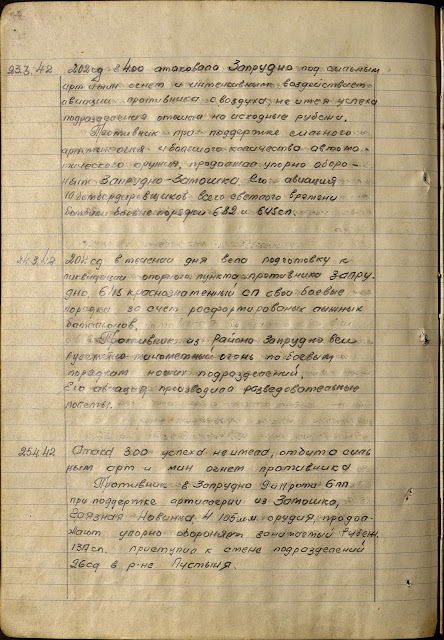 23.3.42 202сд в 400 атаковала Запрудно под сильным
арт.мин огнем и интенсивным воздействием
авиации противника с воздуха, не имея успеха
подразделения отошли на исходные рубежи.
Противник при поддержке сильного
арт.мин.огня и большого количества автома-
тического оружия, продолжал упорно оборо-
нять Запрудно-Замошка. Его авиация
10 бомбардировщиков всего светлого времени
бомбили боевые порядки 682 и 645сп.
24.3.42 202сд в течении дня вела подготовку к
ликвидации опорного пункта противника Запру-
дно. 645 краснознаменный сп свои боевые
порядки за счет расформированых лыжных
батальонов.
Противник из района Запрудно вел
ружейно-пулеметный огонь по боевым
порядкам наших подразделений.
Его авиация производила разведовательные
полеты.
25.4.42 Атака 300 успеха не имела, отбита силь
ным арт и мин огнем противника
Противник в Запрудно 9 и рота 6 пп
при поддержке артиллерии из Замошка,
Грязная Новинка 4 105мм орудия, продол-
жают упорно обороняет занимаемый рубеж.
1317сп. приступил к смене подразделений
26сд в р-не Пустыня.